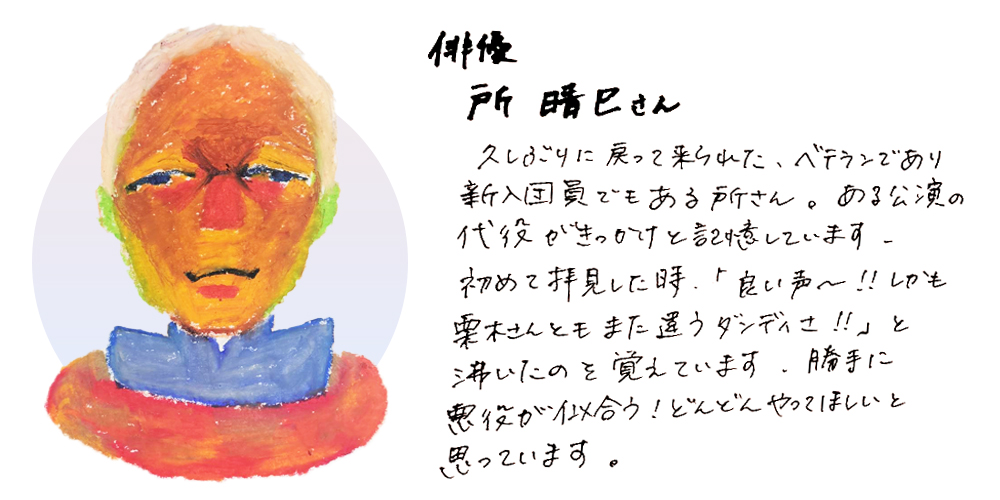 俳優
所 晴巳さん
久しぶりに戻って来られた、ベテランであり
新入団員でもある所さん。ある公演の
代役がきっかけと記憶しています。
初めて拝見した時、「良い声〜!!しかも
栗木さんともまた違うダンディさ!!」と
沸いたのを覚えています。勝手に
悪役が似合う!どんどんやってほしいと
思っています。